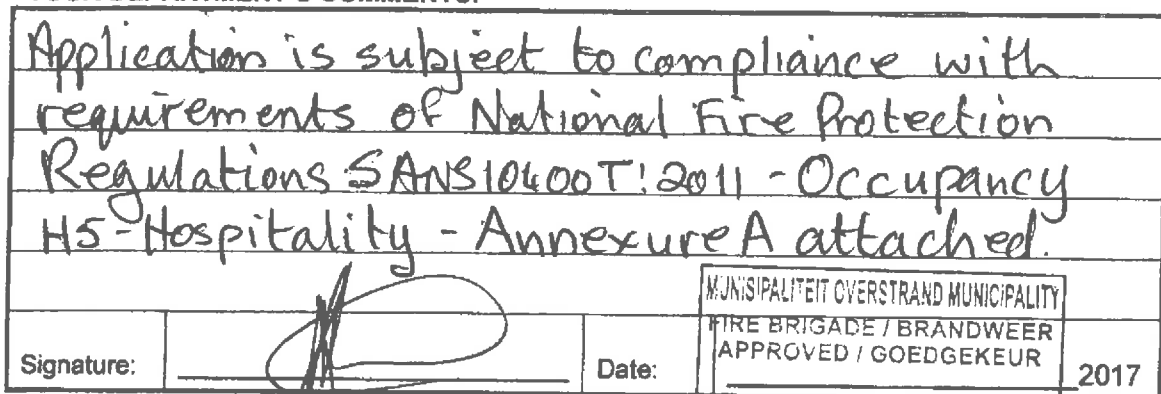 Application is subject to compliance with
requirements of National Fire Protection
Regulations SANS10400T:2011 - Occupancy
H5-Hospitality - Annexure A attached.
MUNISIPALITEIT OVERSTRAND MUNICIPALITY
FIRE BRIGADE / BRANDWEER
APPROVED / GOEDGEKEUR
Signature:
Date:
2017